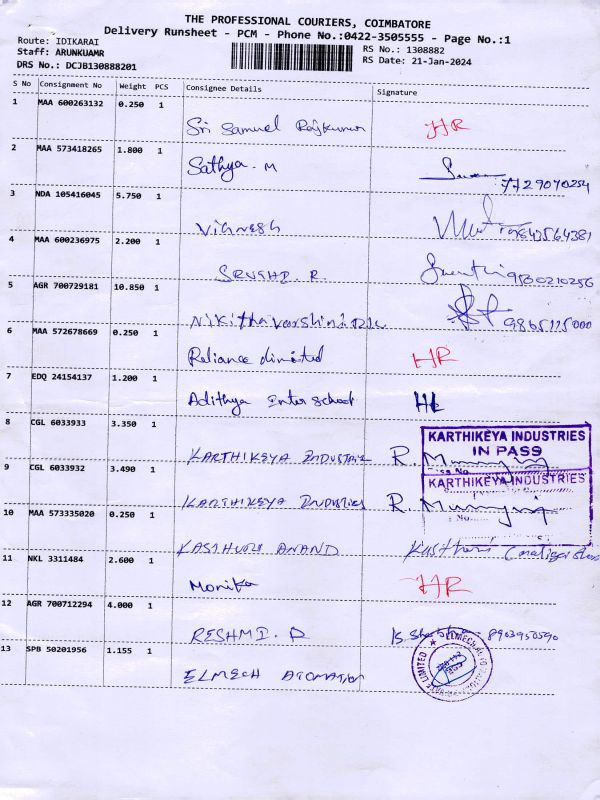 THE PROFESSIONAL COURIERS, COIMBATORE
Delivery Runsheet - PCM - Phone No.:0422-3505555 - Page No.:1
Route: IDIKARAI
Staff: ARUNKUAMR
DRS No.: DCJB130888201
RS No.: 1308882
RS Date: 21-Jan-2024
S No Consignment No Weight PCS Consignee Details Signature
1 MAA 600263132 0.250 1
Sri Samuel Rajkumar HR
2 MAA 573418265 1.800 1
Sathya. M 7729070254
3 NDA 105416045 5.750 1
Vignesh 9843564381
4 MAA 600236975 2.200 1
SRUSHD. R.
5 AGR 700729181 10.850 1
Nikithavarshini
6 MAA 572678669 0.250 1
Reliance limited HR
7 EDQ 24154137 1.200 1
Adithya Enter school
8 CGL 6033933 3.350 1
KARTHIKEYA INDUSTRIE R.
KARTHIKEYA INDUSTRIES
IN PASS
9 CGL 6033932 3.490 1
KARTHIKEYA INDUSTRIES R.
KARTHIKEYA INDUSTRIES
10 MAA 573335020 0.250 1
KASTHURI ANAND
11 NKL 3311484 2.600 1
Monika HR
12 AGR 700712294 4.000 1
RESHMI. D 8903950590
13 SPB 50201956 1.155 1
ELMECH ATOMATION